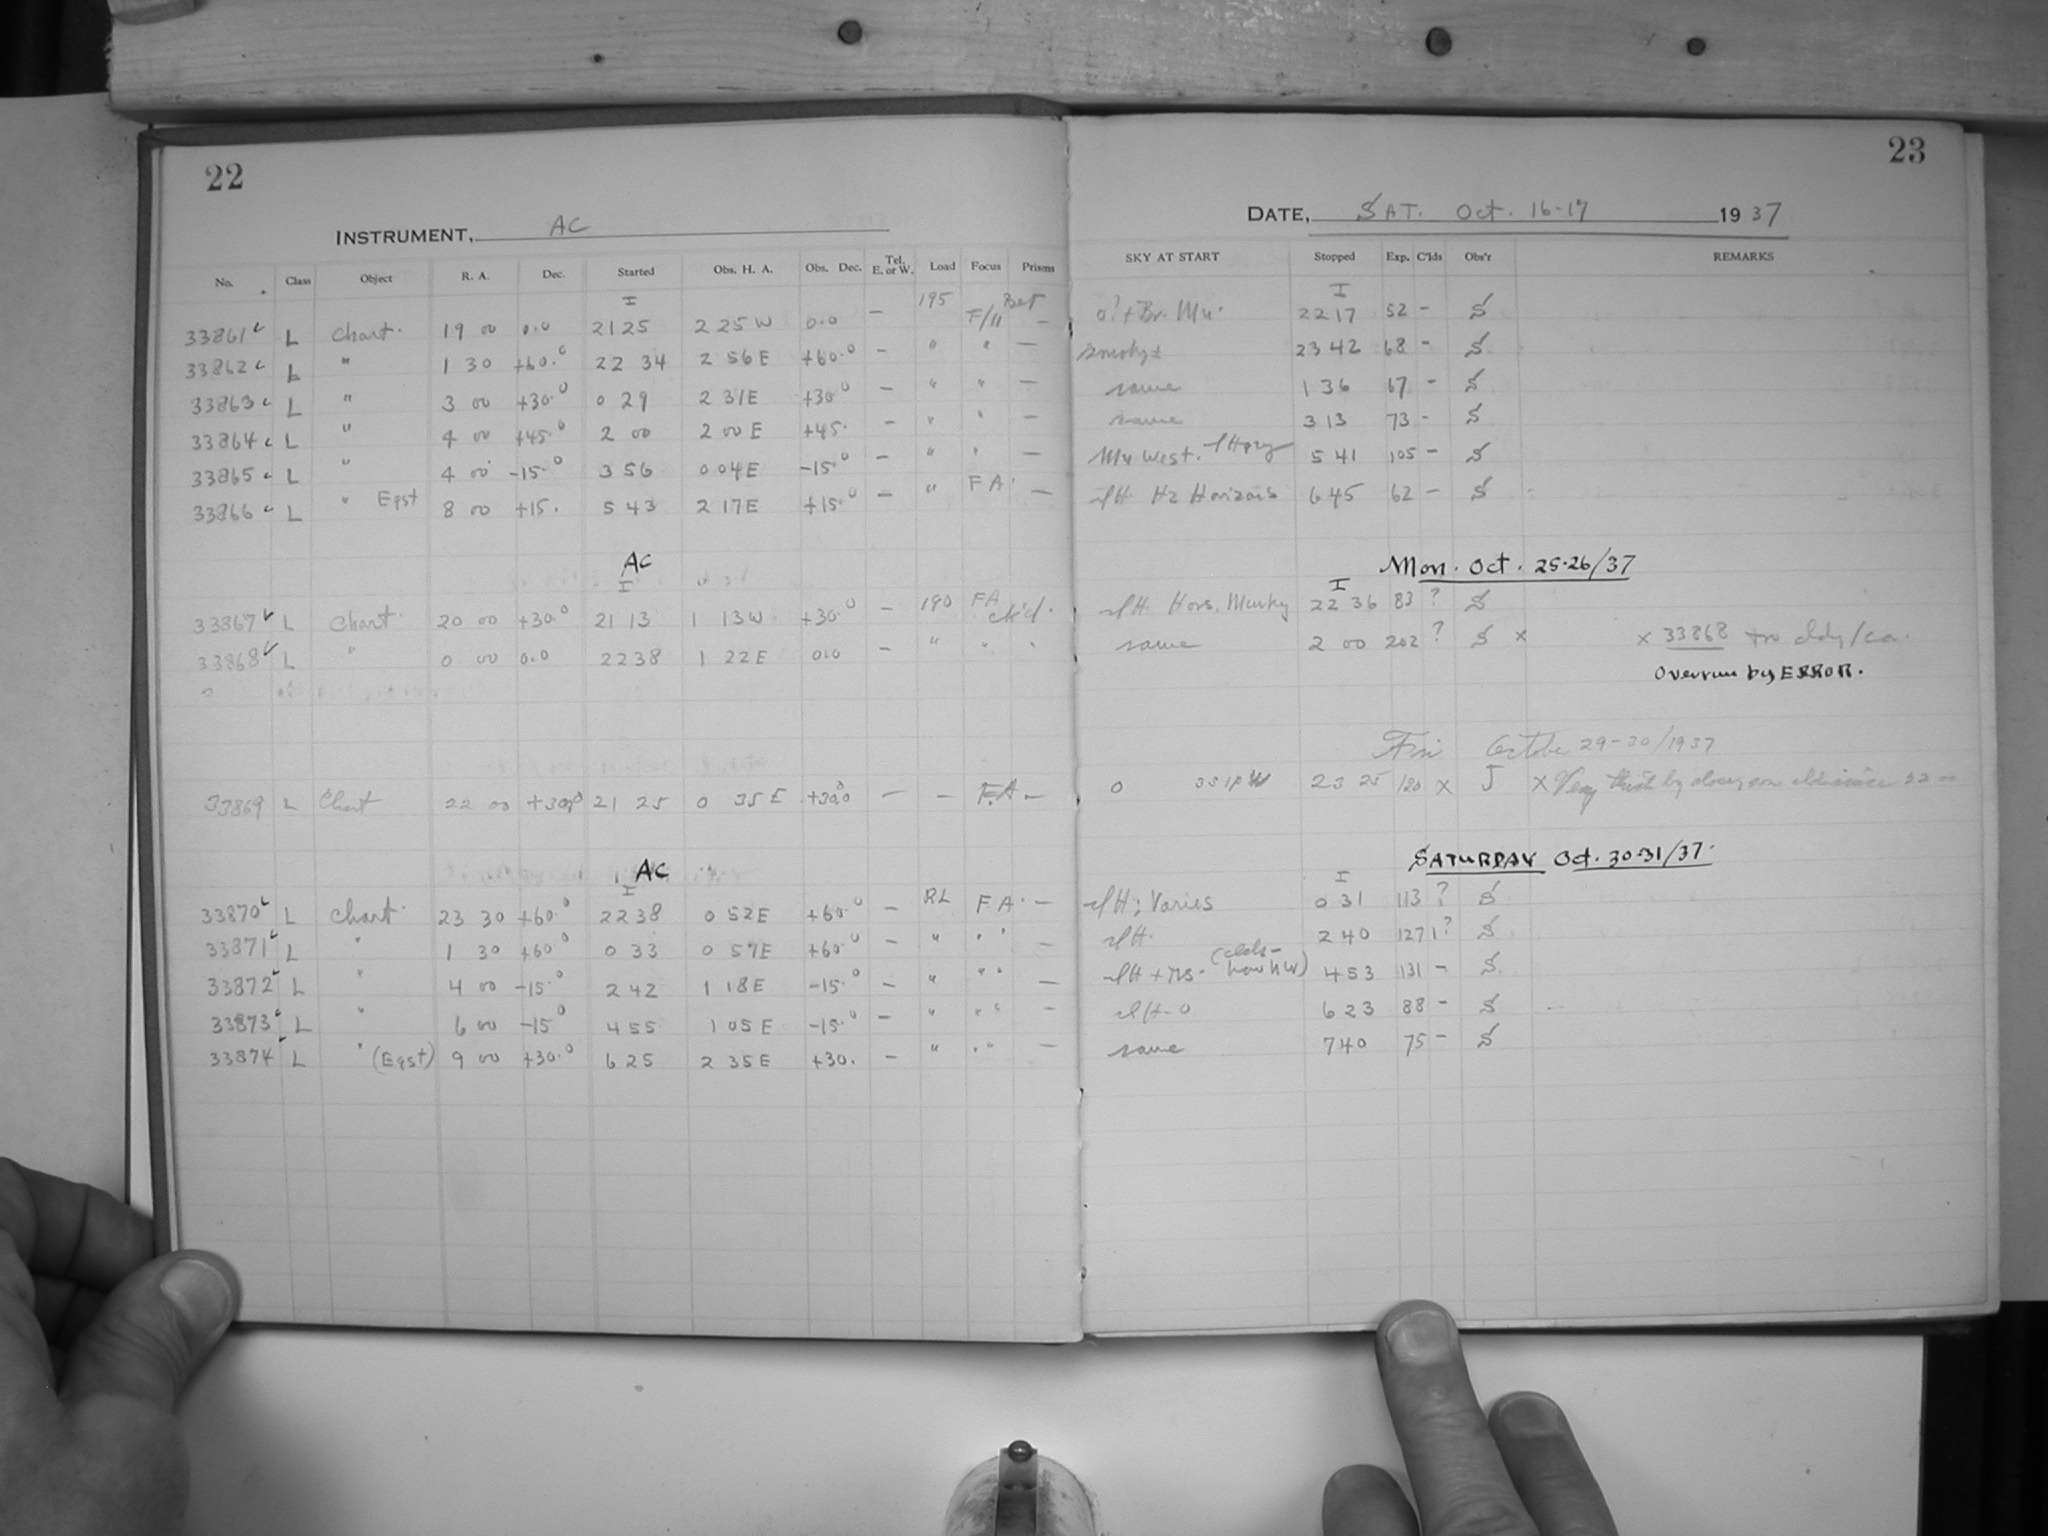 22
INSTRUMENT, AC
No. Class Object R. A. Dec. Started Obs. H. A. Obs. Dec. Tel. E. or W. Load Focus Prisms
I
33861 L Chart. 19 00 0.0 2125 2 25 W 0.0 — 195 F/11 —
33862 L " 1 30 +60.0 22 34 2 56 E +60.0 — " " —
33863 L " 3 00 +30.0 0 29 2 31 E +30.0 — " " —
33864 L " 4 00 +45.0 2 00 2 00 E +45. — " " —
33865 L " 4 00 -15.0 3 56 0 04 E -15.0 — " " —
33866 L " Eqst 8 00 +15. 5 43 2 17 E +15.0 — " F A. —
AC
I
33867 L Chart. 20 00 +30.0 21 13 1 13 W +30.0 — 190 FA ck'd.
33868 L " 0 00 0.0 2238 1 22 E 0.0 — " " "
33869 L Chart 22 00 +30.0 21 25 0 35 E +30.0 — — F.A. —
AC
I
33870 L Chart. 23 30 +60.0 2238 0 52 E +60.0 — RL F.A. —
33871 L " 1 30 +60.0 0 33 0 57 E +60.0 — " " " —
33872 L " 4 00 -15.0 2 42 1 18 E -15.0 — " " " —
33873 L " 6 00 -15.0 4 55 1 05 E -15.0 — " " " —
33874 L " (Eqst) 9 00 +30.0 6 25 2 35 E +30. — " " " —
23
DATE, SAT. Oct. 16-17 1937
SKY AT START Stopped Exp. C'lds Obs'r REMARKS
I
2217 52 - S
Smoky 2342 68 - S
same 1 36 67 - S
same 3 13 73 - S
West. 5 41 105 - S
Hz Horizons 6 45 62 - S
Mon. Oct. 25-26/37
I
Hors. Murky 22 36 83 ? S
same 2 00 202 ? S × × 33868
Overrun by ERROR.
Fri October 29-30/1937
0 23 25 120 × J × Very thick by
SATURDAY Oct. 30-31/37.
I
Varies 0 31 113 ? S
2 40 127 ? S
4 53 131 - S
6 23 88 - S
same 7 40 75 - S